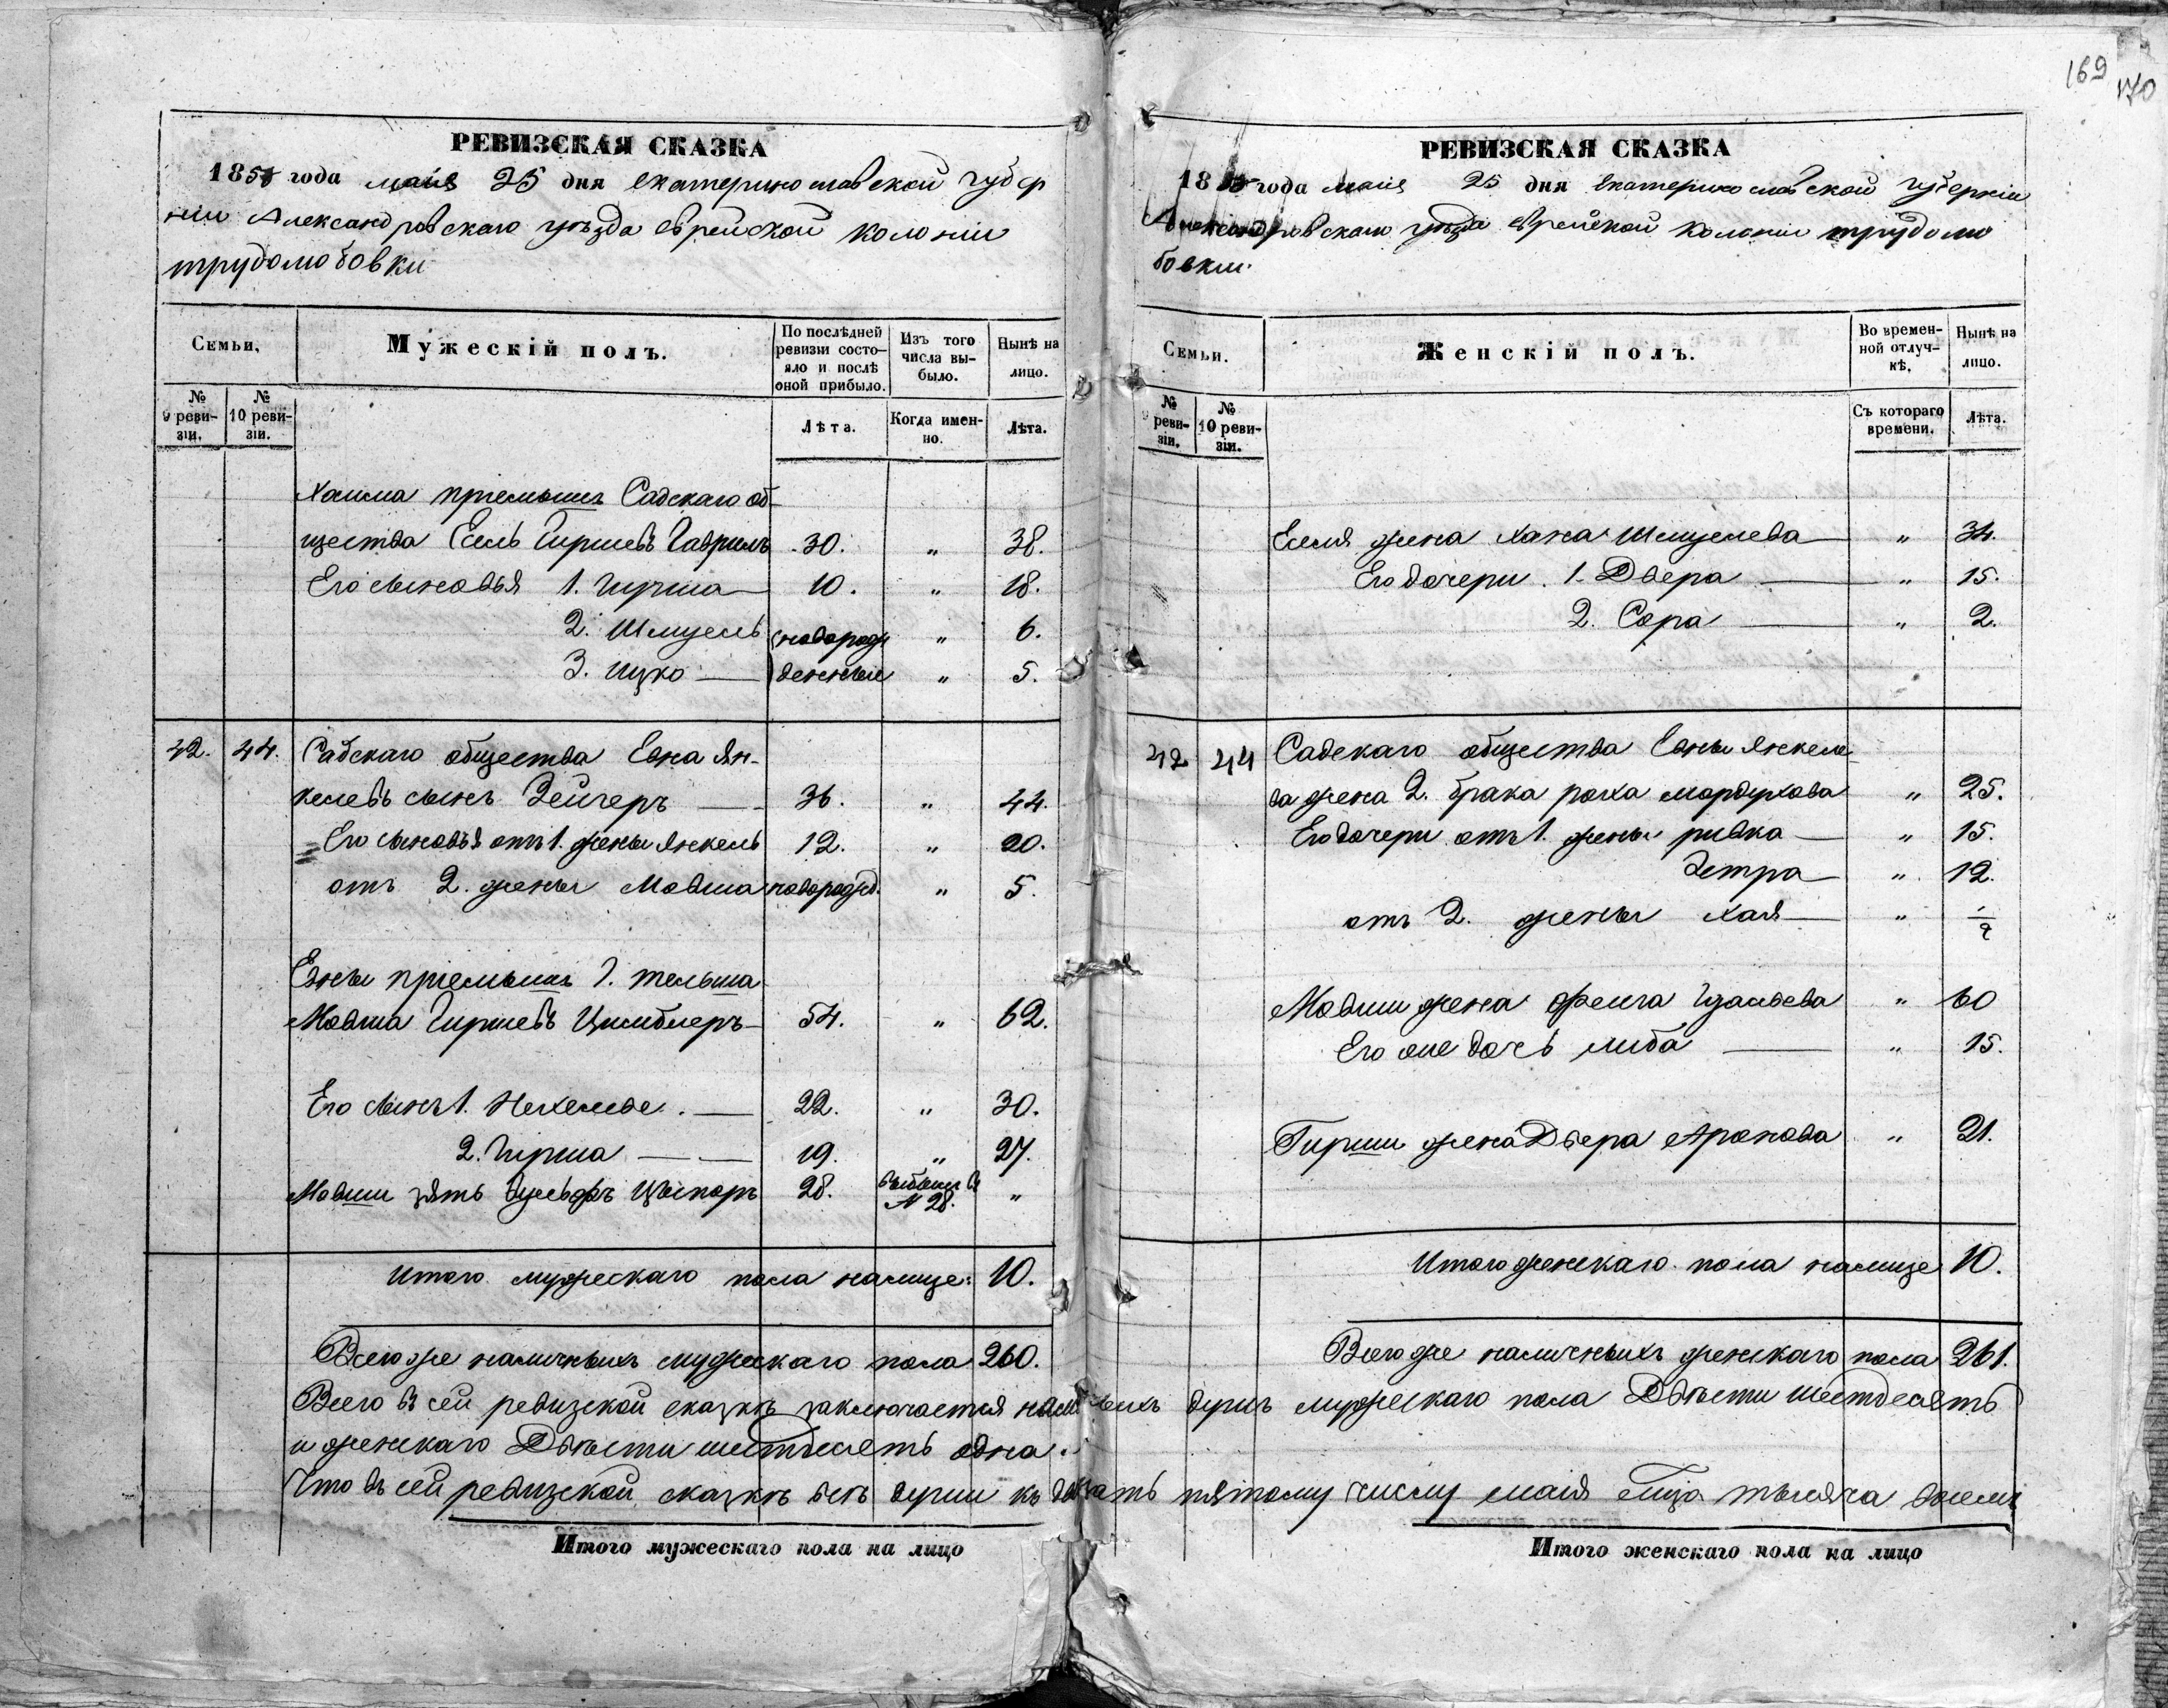 169
170
РЕВИЗСКАЯ СКАЗКА
1858 года маія 25 дня екатеринославской губер
ніи Александровскаго уѣзда еврейской колоніи
трудолюбовки
Семьи,
Мужескій полъ.
По послѣдней ревизіи состояло и послѣ оной прибыло.
Изъ того числа выбыло.
Нынѣ на лицо.
№ 9 ревизіи.
№ 10 ревизіи.
Лѣта.
Когда именно.
Лѣта.
Хаима пріемышъ Садскаго об-
щества Есель Гиршевъ Гаврилъ 30. „ 38.
Его сыновья 1. Гирша 10. „ 18.
2. Шмуель новорож „ 6.
3. Ицко денные „ 5.
42. 44. Садскаго общества Евна Ян-
келевъ сынъ Зейгеръ 36. „ 44.
Его сыновья отъ 1. жены Янкель 12. „ 20.
отъ 2. жены Мовша новорожд. „ 5.
Евны пріемышъ г. тельша
Мовша Гиршевъ Цимблеръ 54. „ 62.
Его сынъ 1. Нехемье. 22. „ 30.
2. Гирша 19. „ 27.
Мовши зять 28. N 28. „
Итого мужескаго пола налице: 10.
Всего же наличныхъ мужескаго пола 260.
РЕВИЗСКАЯ СКАЗКА
18 года маія 25 дня екатеринославской губерніи
Александровскаго уѣзда еврейской колоніи трудолю
бовки.
Семьи.
Женскій полъ.
Во временной отлучкѣ.
Нынѣ на лицо.
№ 9 ревизіи.
№ 10 ревизіи.
Съ котораго времени.
Лѣта.
Еселя жена Хана Шмуелева „ 34.
Его дочери. 1. Двера „ 15.
2. Сора „ 2.
42 44 Садскаго общества Евны Янкеле
ва жена 2. брака роха мордухова „ 25.
Его дочери отъ 1. жены ривка „ 15.
„ 12.
отъ 2. жены хая „
Мовши жена фейга „ 60
Его же дочь либа „ 15.
Гирши жена Двера Аронова „ 21.
Итого женскаго пола налице 10.
Всего же наличныхъ женскаго пола 261.
Всего въ сей ревизской сказкѣ заключается наличныхъ душъ мужескаго пола Двѣсти шестдесятъ
и женскаго Двѣсти шестдесятъ одна.
Что въ сей ревизской сказкѣ всѣ души къ двадцать пятому числу маія мца тысяча восемь
Итого мужескаго пола на лицо
Итого женскаго пола на лицо